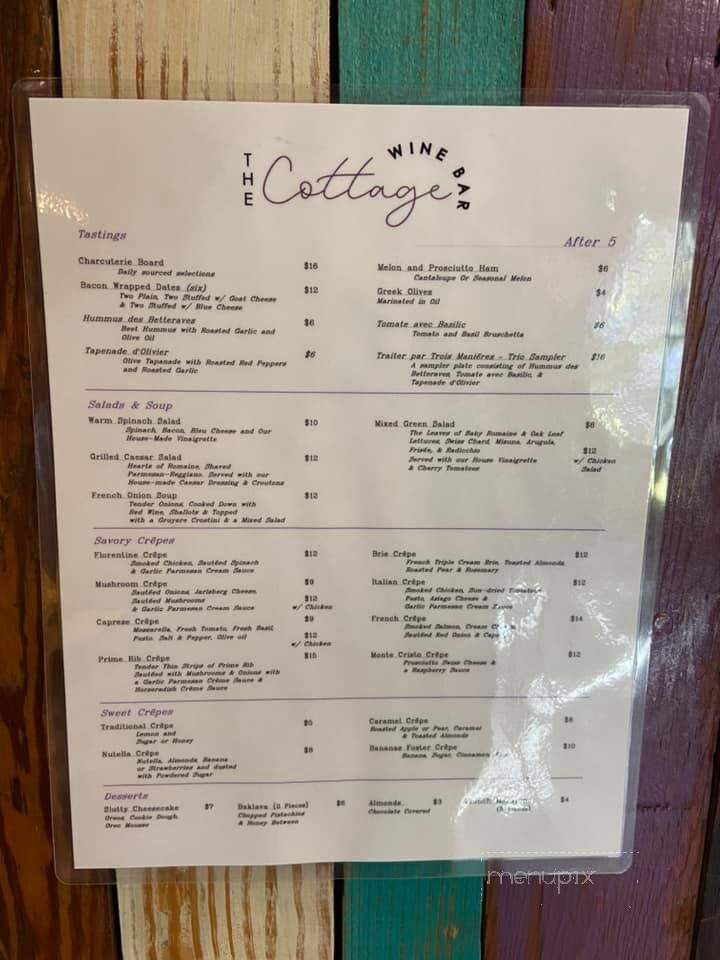 THE Cottage WINE BAR
Tastings
After 5
Charcuterie Board $16
Daily sourced selections
Bacon Wrapped Dates (six) $12
Two Plain, Two Stuffed w/ Goat Cheese
& Two Stuffed w/ Blue Cheese
Hummus des Betteraves $6
Beet Hummus with Roasted Garlic and
Olive Oil
Tapenade d'Olivier $6
Olive Tapanade with Roasted Red Peppers
and Roasted Garlic
Melon and Prosciutto Ham $6
Cantaloupe Or Seasonal Melon
Greek Olives $4
Marinated in Oil
Tomate avec Basilic $6
Tomato and Basil Bruschetta
Traiter par Trois Maniéres - Trio Sampler $16
A sampler plate consisting of Hummus des
Betteraves, Tomate avec Basilic, &
Tapenade d'Olivier
Salads & Soup
Warm Spinach Salad $10
Spinach, Bacon, Bleu Cheese and Our
House-Made Vinaigrette
Grilled Caesar Salad $12
Hearts of Romaine, Shaved
Parmesan-Reggiano. Served with our
House-made Caesar Dressing & Croutons
French Onion Soup $12
Tender Onions, Cooked Down with
Red Wine, Shallots & Topped
with a Gruyere Crostini & a Mixed Salad
Mixed Green Salad $6
The Leaves of Baby Romaine & Oak Leaf
Lettuces, Swiss Chard, Mizuna, Arugula,
Frisée, & Radicchio $12
Served with our House Vinaigrette w/ Chicken
& Cherry Tomatoes Salad
Savory Crêpes
Florentine Crêpe $12
Smoked Chicken, Sautéed Spinach
& Garlic Parmesan Cream Sauce
Mushroom Crêpe $9
Sautéed Onions, Jarlsberg Cheese,
Sautéed Mushrooms $12
& Garlic Parmesan Cream Sauce w/ Chicken
Caprese Crêpe $9
Mozzarella, Fresh Tomato, Fresh Basil,
Pesto, Salt & Pepper, Olive oil $12
w/ Chicken
Prime Rib Crêpe $15
Tender Thin Strips of Prime Rib
Sautéed with Mushrooms & Onions with
a Garlic Parmesan Crème Sauce &
Horseradish Crème Sauce
Brie Crêpe $12
French Triple Cream Brie, Toasted Almonds,
Roasted Pear & Rosemary
Italian Crêpe $12
Smoked Chicken, Sun-dried Tomatoes
Pesto, Asiago Cheese &
Garlic Parmesan Cream Sauce
French Crêpe $14
Smoked Salmon, Cream
Sautéed Red Onion &
Monte Cristo Crêpe $12
Prosciutto Swiss Cheese &
a Raspberry Sauce
Sweet Crêpes
Traditional Crêpe $5
Lemon and
Sugar or Honey
Nutella Crêpe $8
Nutella, Almonds, Banana
or Strawberries and dusted
with Powdered Sugar
Caramel Crêpe $8
Roasted Apple or Pear, Caramel
& Toasted Almonds
Bananas Foster Crêpe $10
Banana, Sugar, Cinnamon,
Desserts
Slutty Cheesecake $7
Oreos, Cookie Dough,
Oreo Mousse
Baklava (2 Pieces) $6
Chopped Pistachios
& Honey Between
Almonds $3
Chocolate Covered
$4
menupix